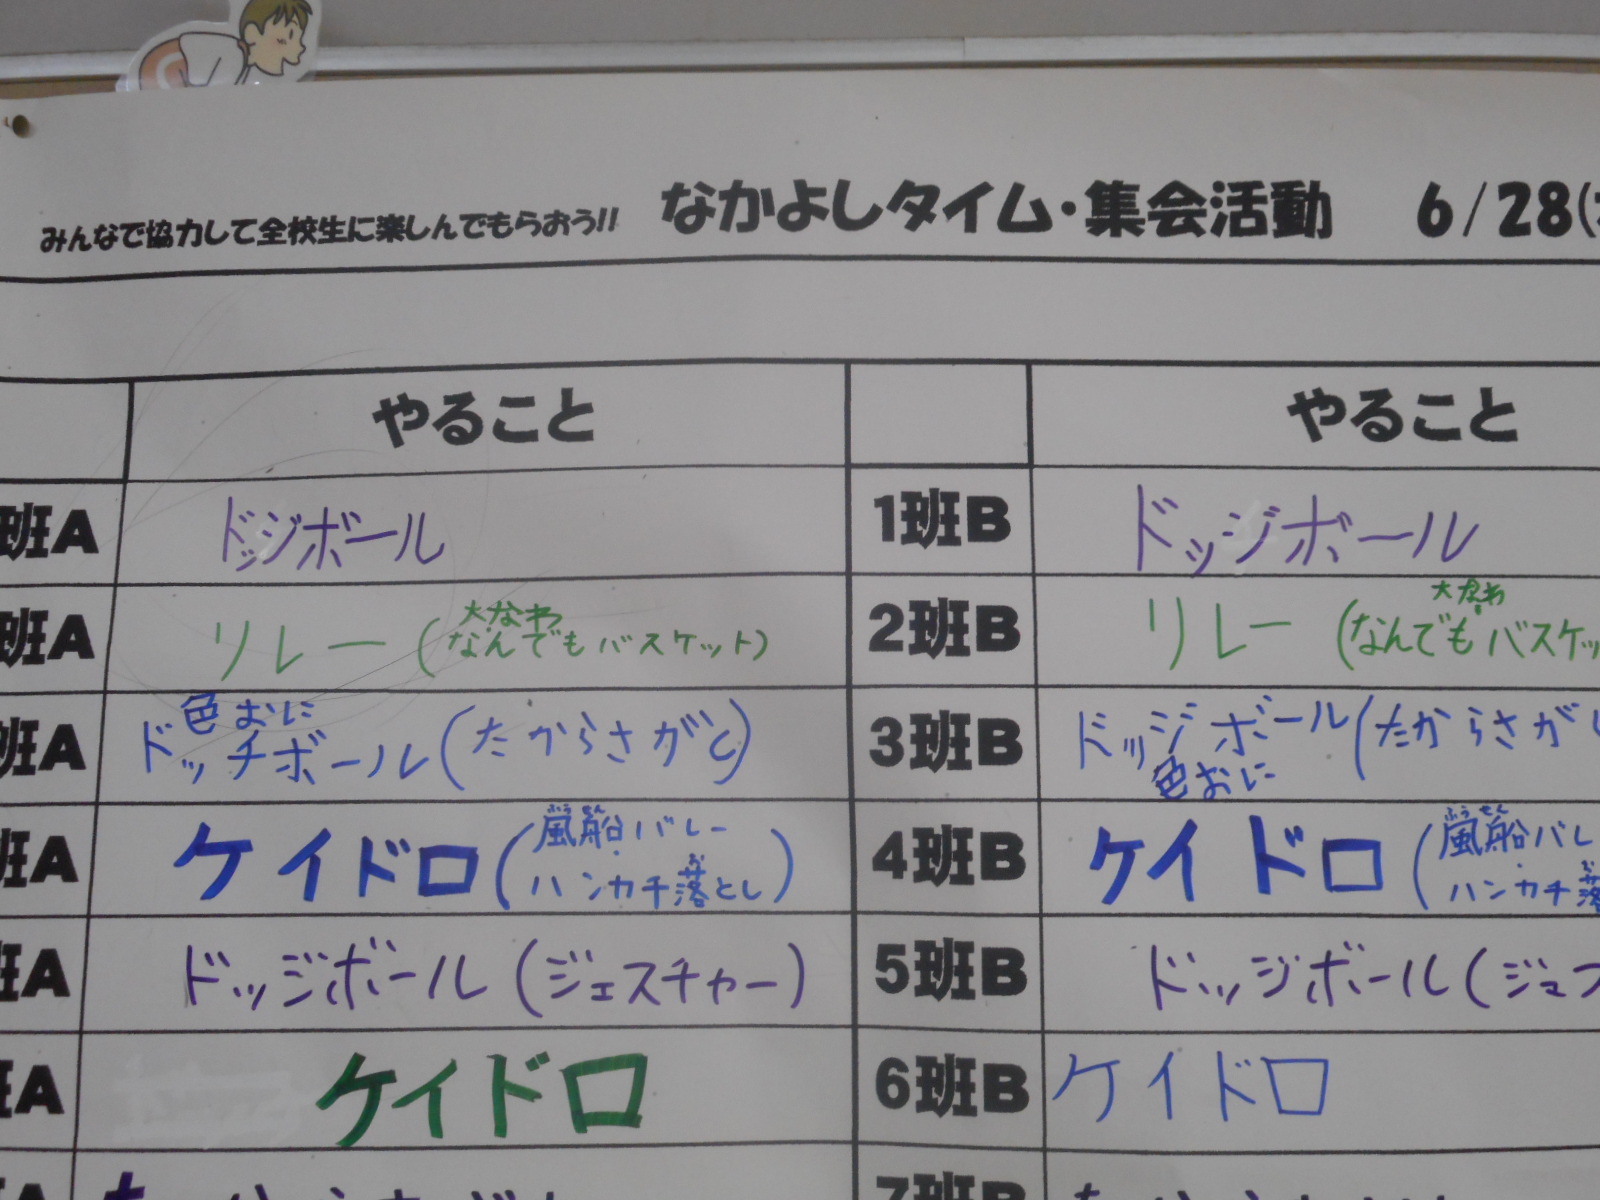 みんなで協力して全校生に楽しんでもらおう!! なかよしタイム・集会活動 6/28(
やること やること
班A ドッジボール 1班B ドッジボール
大なわ 大なわ
班A リレー (なんでもバスケット) 2班B リレー (なんでもバスケッ
色おに
班A ドッチボール(たからさがし) 3班B ドッジボール(たからさがし
色おに
ふうせん ふうせん
風船バレー 風船バレ
班A ケイドロ ( ・ ) 4班B ケイドロ ( ・
お お
ハンカチ落とし ハンカチ落
班A ドッジボール (ジェスチャー) 5班B ドッジボール (ジェス
班A ケイドロ 6班B ケイドロ
7班B